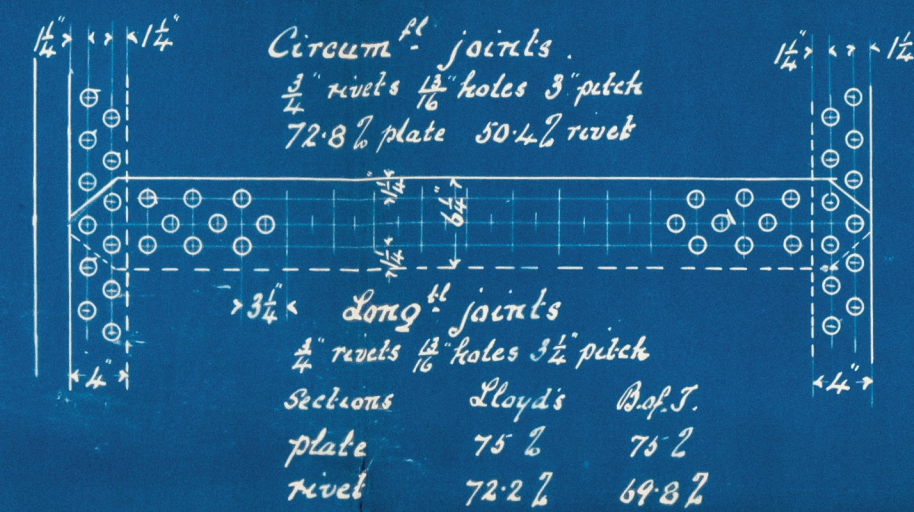 1¼" 1¼" Circum^fl. joints. 1¼" 1¼"
¾" rivets 13/16" holes 3" pitch
72·8% plate 50·4% rivet
1¼"
6¼"
1¼"
3¼" Long^tl. joints
¾" rivets 13/16" holes 3¼" pitch
4" 4"
Sections Lloyd's B. of T.
plate 75% 75%
rivet 72·2% 69·8%